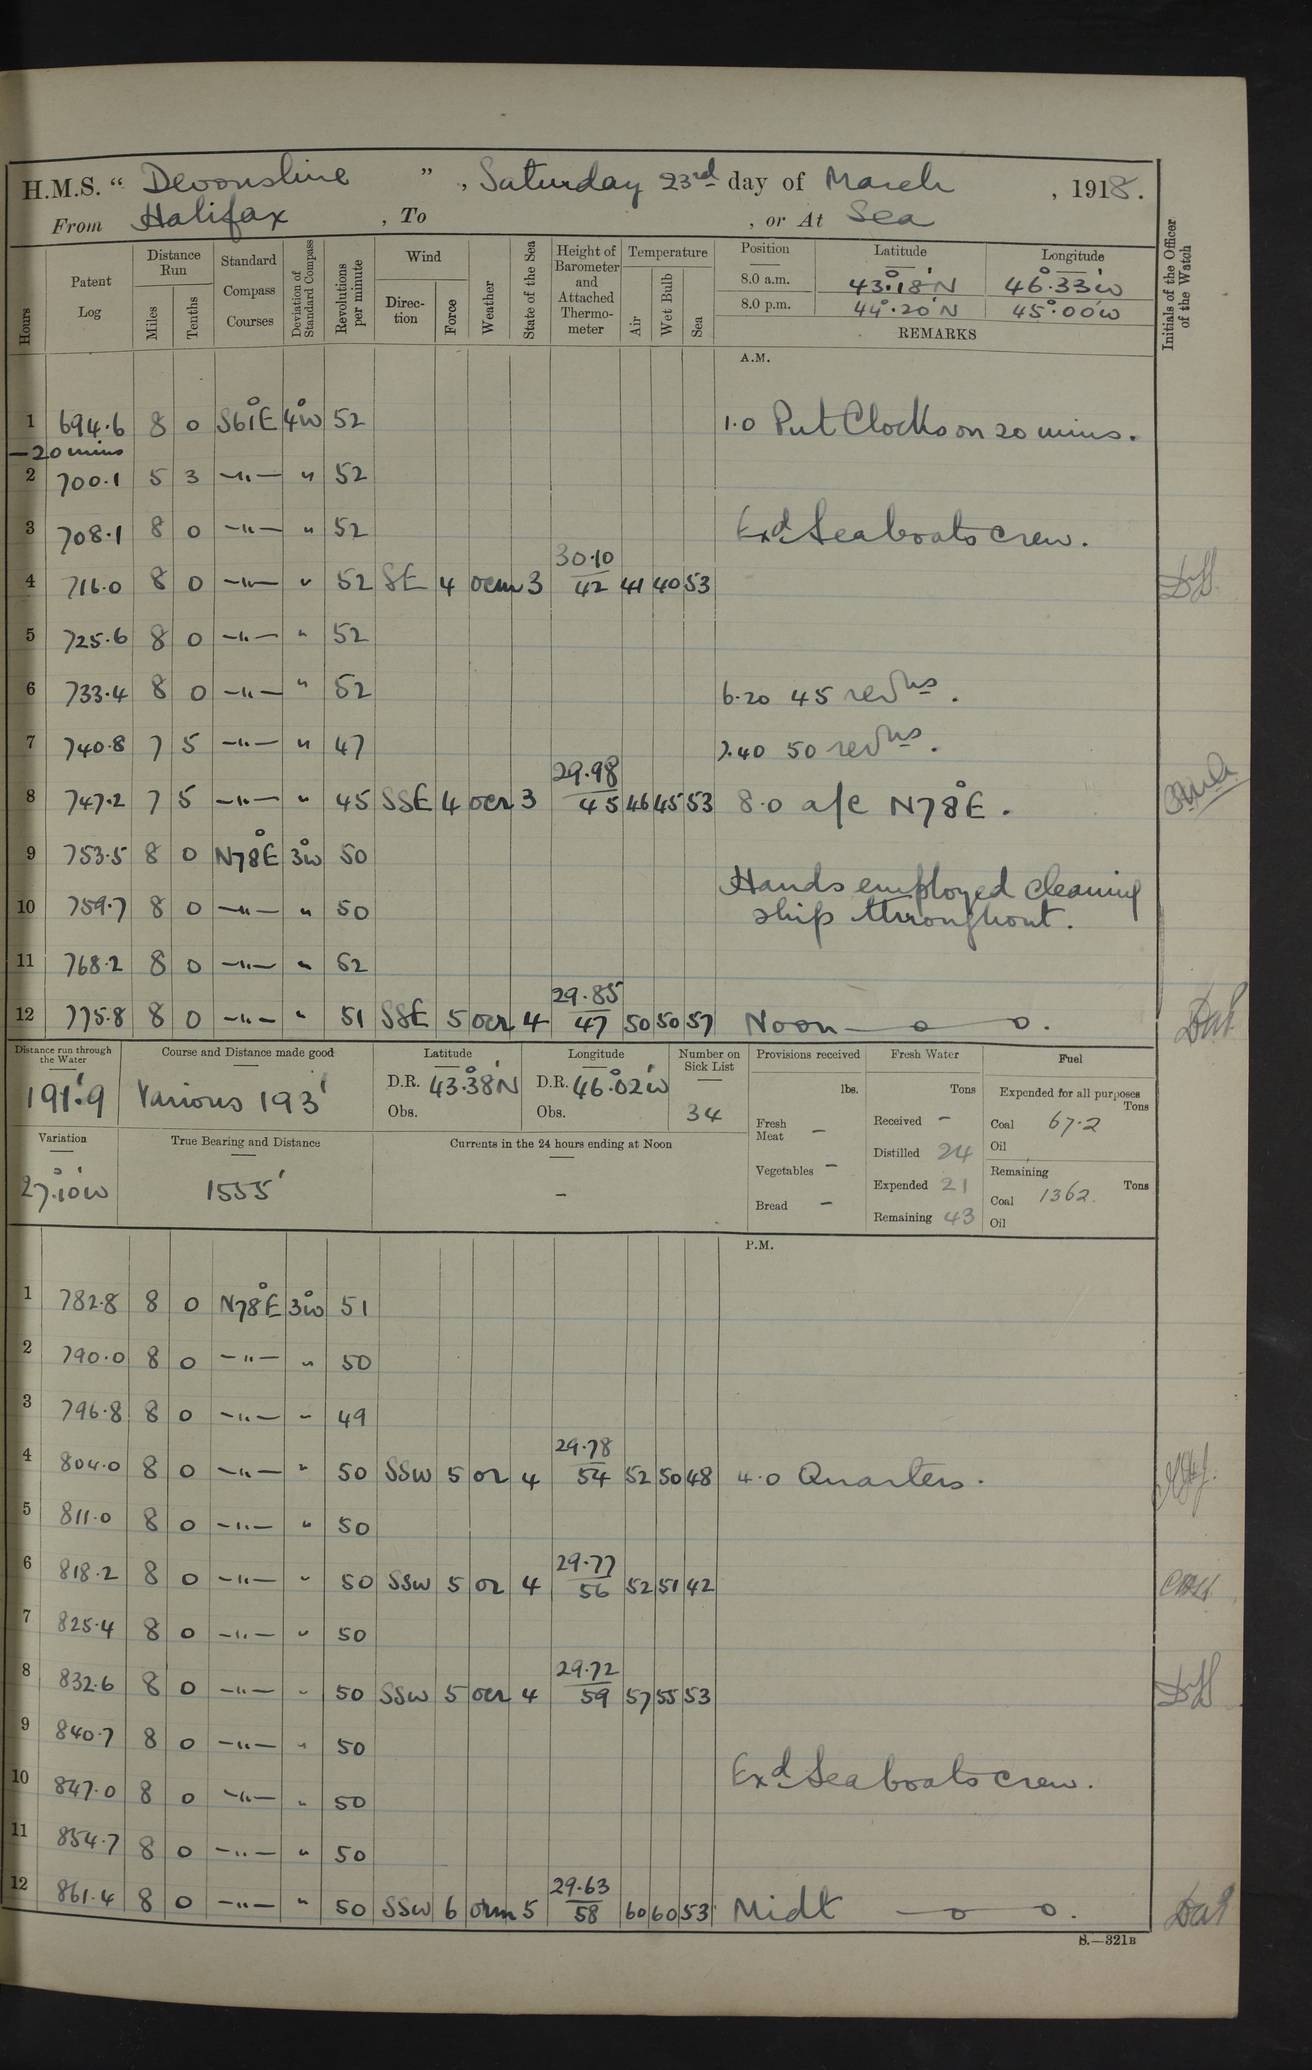 H.M.S. “ Devonshire ” , Saturday 23rd day of March , 1918.
From Halifax , To , or At Sea
Hours Patent Log Distance Run Miles Tenths Standard Compass Courses Deviation of Standard Compass Revolutions per minute Wind Direction Force Weather State of the Sea Height of Barometer and Attached Thermometer Temperature Air Wet Bulb Sea Position Latitude Longitude Initials of the Officer of the Watch
8.0 a.m. 43°.18'N 46°.33'W
8.0 p.m. 44°.20'N 45°.00'W
REMARKS
A.M.
1 694.6 8 0 S61°E 4°W 52 1.0 Put Clocks on 20 mins.
—20 mins
2 700.1 5 3 —"— " 52
3 708.1 8 0 —"— " 52 Exd Seaboats crew.
30.10
4 716.0 8 0 —"— " 52 SE 4 ocm 3 42 41 40 53
5 725.6 8 0 —"— " 52
6 733.4 8 0 —"— " 52 6.20 45 revns.
7 740.8 7 5 —"— " 47 7.40 50 revns.
29.98
8 747.2 7 5 —"— " 45 SSE 4 ocr 3 45 46 45 53 8.0 a/c N78°E.
9 753.5 8 0 N78°E 3°W 50
Hands employed cleaning
10 759.7 8 0 —"— " 50 ship throughout.
11 768.2 8 0 —"— " 52
29.85
12 775.8 8 0 —"— " 51 SSE 5 ocr 4 47 50 50 57 Noon — o — o.
Distance run through the Water Course and Distance made good Latitude Longitude Number on Sick List Provisions received Fresh Water Fuel
191'.9 Various 193' D.R. 43°.38'N D.R. 46°.02'W lbs. Tons Expended for all purposes Tons
Obs. Obs. 34 Fresh Meat — Received — Coal 67.2
Variation True Bearing and Distance Currents in the 24 hours ending at Noon Distilled 24 Oil
27°.10'W 1555' — Vegetables — Expended 21 Remaining Tons
Bread — Remaining 43 Coal 1362
Oil
P.M.
1 782.8 8 0 N78°E 3°W 51
2 790.0 8 0 —"— " 50
3 796.8 8 0 —"— " 49
29.78
4 804.0 8 0 —"— " 50 SSW 5 or 4 54 52 50 48 4.0 Quarters.
5 811.0 8 0 —"— " 50
29.77
6 818.2 8 0 —"— " 50 SSW 5 or 4 56 52 51 42
7 825.4 8 0 —"— " 50
29.72
8 832.6 8 0 —"— " 50 SSW 5 ocr 4 59 57 55 53
9 840.7 8 0 —"— " 50
10 847.0 8 0 —"— " 50 Exd Seaboats crew.
11 854.7 8 0 —"— " 50
29.63
12 861.4 8 0 —"— " 50 SSW 6 orm 5 58 60 60 53 Midt — o — o.
S.—321B